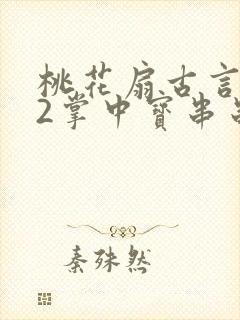 桃花扇古言
2掌中寳串
秦殊然